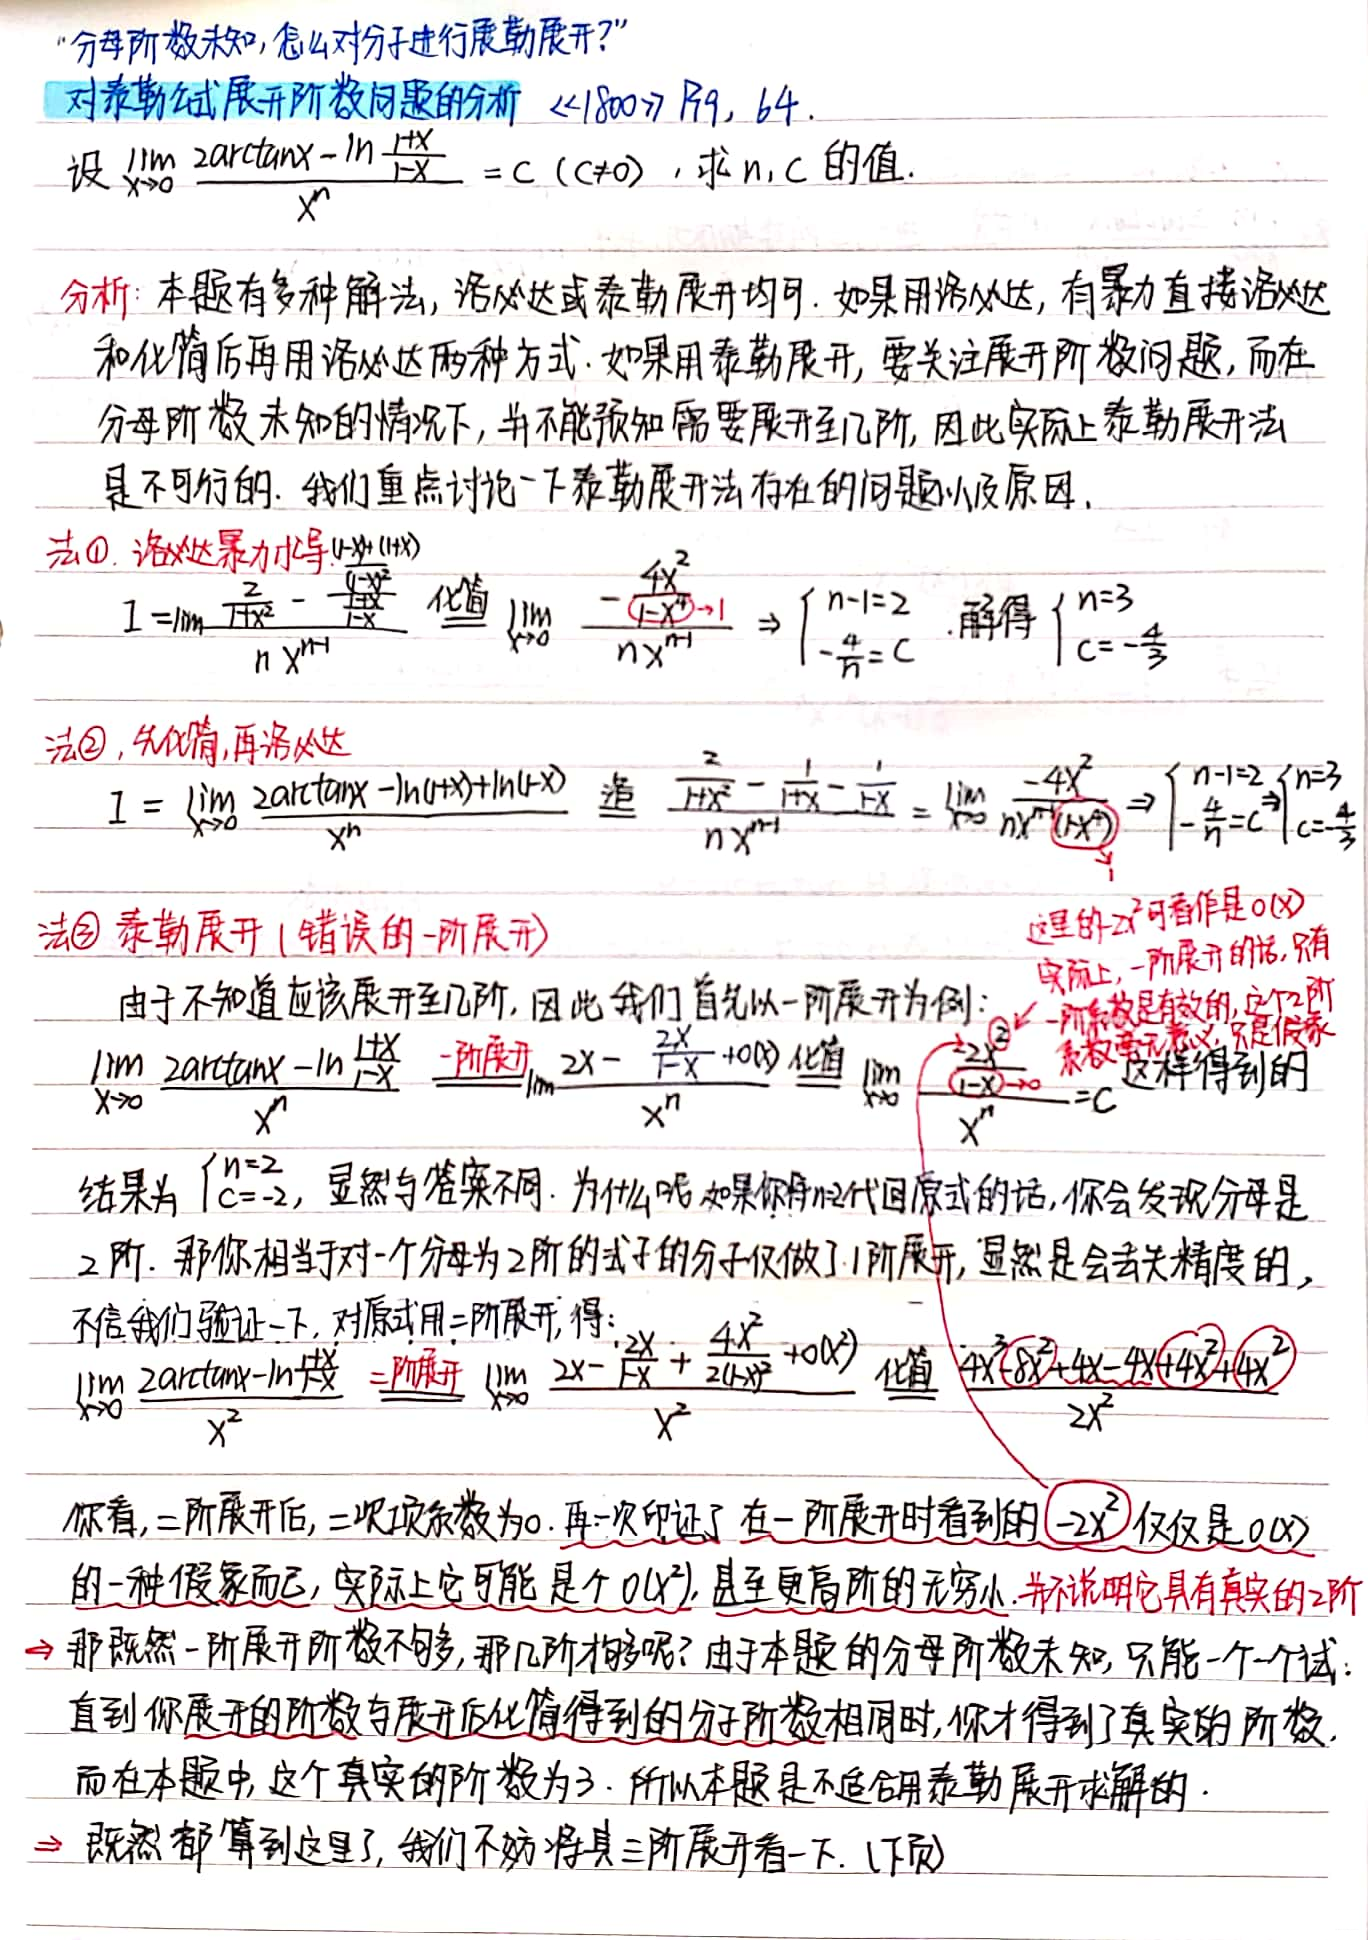 “分母阶数未知,怎么对分子进行展勒展开?”
对泰勒公式展开阶数问题的分析 《1800》P19, 64.
设 lim x→0 (2arctanx - ln (1+x)/(1-x)) / xⁿ = C (C≠0), 求n,C的值.
分析: 本题有多种解法,洛必达或泰勒展开均可. 如果用洛必达,有暴力直接洛必达
和化简后再用洛必达两种方式. 如果用泰勒展开,要关注展开阶数问题,而在
分母阶数未知的情况下,并不能预知需要展开至几阶,因此实际上泰勒展开法
是不可行的. 我们重点讨论一下泰勒展开法存在的问题以及原因.
法①. 洛必达暴力求导.
I = lim (2/(1+x²) - (((1-x)+(1+x))/(1-x)²)/((1+x)/(1-x))) / (n xⁿ⁻¹) 化简 lim x→0 (-4x²/(1-x⁴)→1) / (n xⁿ⁻¹) ⇒ { n-1=2, -4/n=C . 解得 { n=3, C=-4/3
法②, 先化简,再洛必达
I = lim x→0 (2arctanx - ln(1+x)+ln(1-x)) / xⁿ 洛 (2/(1+x²) - 1/(1+x) - 1/(1-x)) / (n xⁿ⁻¹) = lim x→0 -4x² / (n xⁿ⁻¹(1-x⁴)) ⇒ { n-1=2, -4/n=C ⇒ { n=3, C=-4/3
1
法③ 泰勒展开 (错误的一阶展开)
这里的-2x²可看作是o(x)
实际上,一阶展开的话,只有
一阶系数是有效的,这个2阶
系数毫无意义,只是假象
由于不知道应该展开至几阶,因此我们首先以一阶展开为例:
lim x→0 (2arctanx - ln (1+x)/(1-x)) / xⁿ 一阶展开 lim (2x - 2x/(1-x) + o(x)) / xⁿ 化简 lim x→0 (-2x²/(1-x)→0) / xⁿ = C 这样得到的
结果为 { n=2, C=-2, 显然与答案不同. 为什么呢 如果你将n=2代回原式的话,你会发现分母是
2阶. 那你相当于对一个分母为2阶的式子的分子仅做了1阶展开,显然是会丢失精度的,
不信我们验证一下, 对原式用二阶展开,得:
lim x→0 (2arctanx - ln (1+x)/(1-x)) / x² 二阶展开 lim x→0 (2x - 2x/(1-x) + 4x²/(2(1-x)²) + o(x²)) / x² 化简 (4x³-8x²+4x-4x+4x²+4x²) / 2x²
你看,二阶展开后,二次项系数为0. 再一次印证了 在一阶展开时看到的 -2x² 仅仅是o(x)
的一种假象而已, 实际上它可能是个o(x²), 甚至更高阶的无穷小. 并不说明它具有真实的2阶
⇒ 那既然一阶展开阶数不够多,那几阶才够多呢? 由于本题的分母阶数未知,只能一个一个试:
直到你展开的阶数与展开后化简得到的分子阶数相同时,你才得到了真实的阶数.
而在本题中,这个真实的阶数为3. 所以本题是不适合用泰勒展开求解的.
⇒ 既然都算到这里了,我们不妨将其三阶展开看一下. (下页)